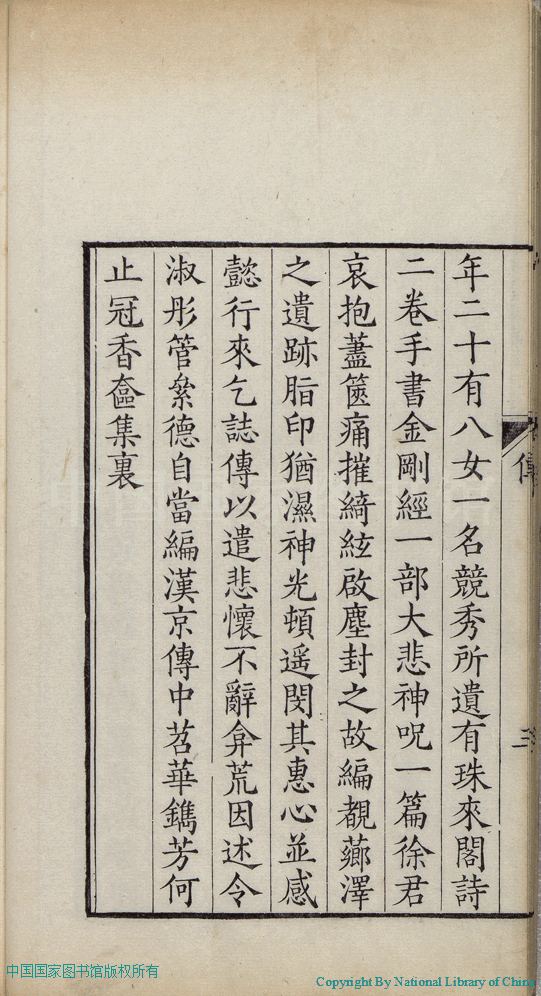 年二十有八女一名競秀所遺有珠來閣詩
二卷手書金剛經一部大悲神呪一篇徐君
哀抱藎篋痛摧綺絃啟塵封之故編覩薌澤
之遺跡脂印猶濕神光頓遥閔其惠心並感
懿行來乞誌傳以遣悲懷不辭弇荒因述令
淑彤管絫德自當編漢京傳中苕華鐫芳何
止冠香奩集裏
傳
三
中国国家图书馆版权所有
Copyright By National Library of China